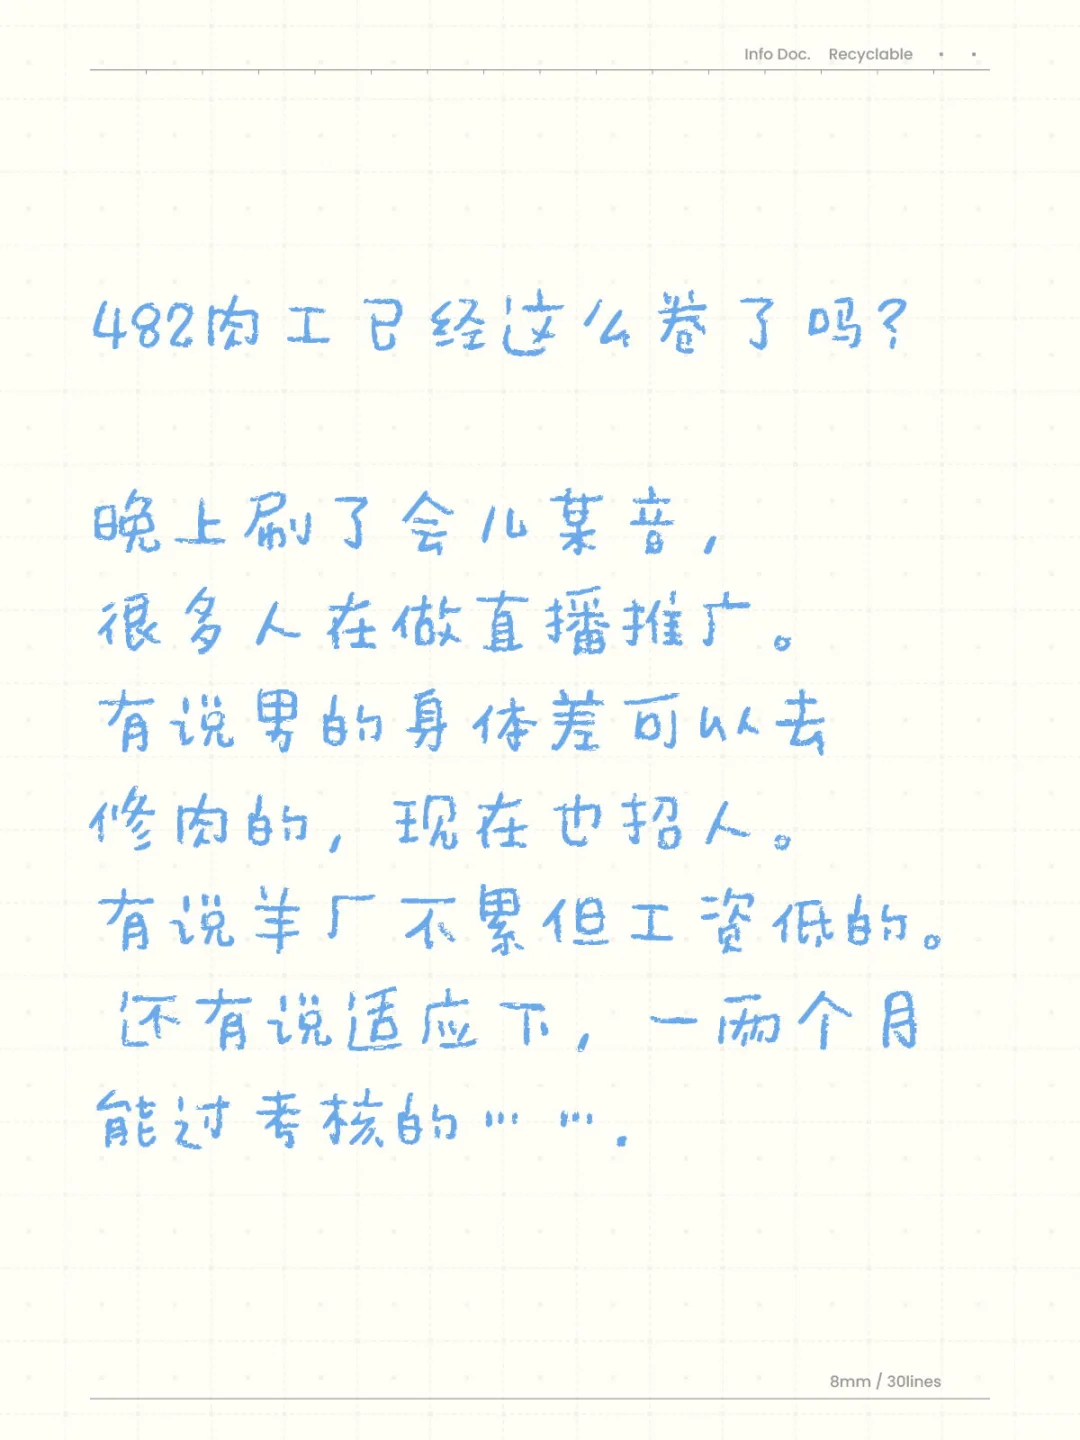 Info Doc. Recyclable
482肉工已经这么卷了吗?
晚上刷了会儿某音,
很多人在做直播推广。
有说男的身体差可以去
修肉的,现在也招人。
有说羊厂不累但工资低的。
还有说适应下,一两个月
能过考核的…….
8mm / 30lines